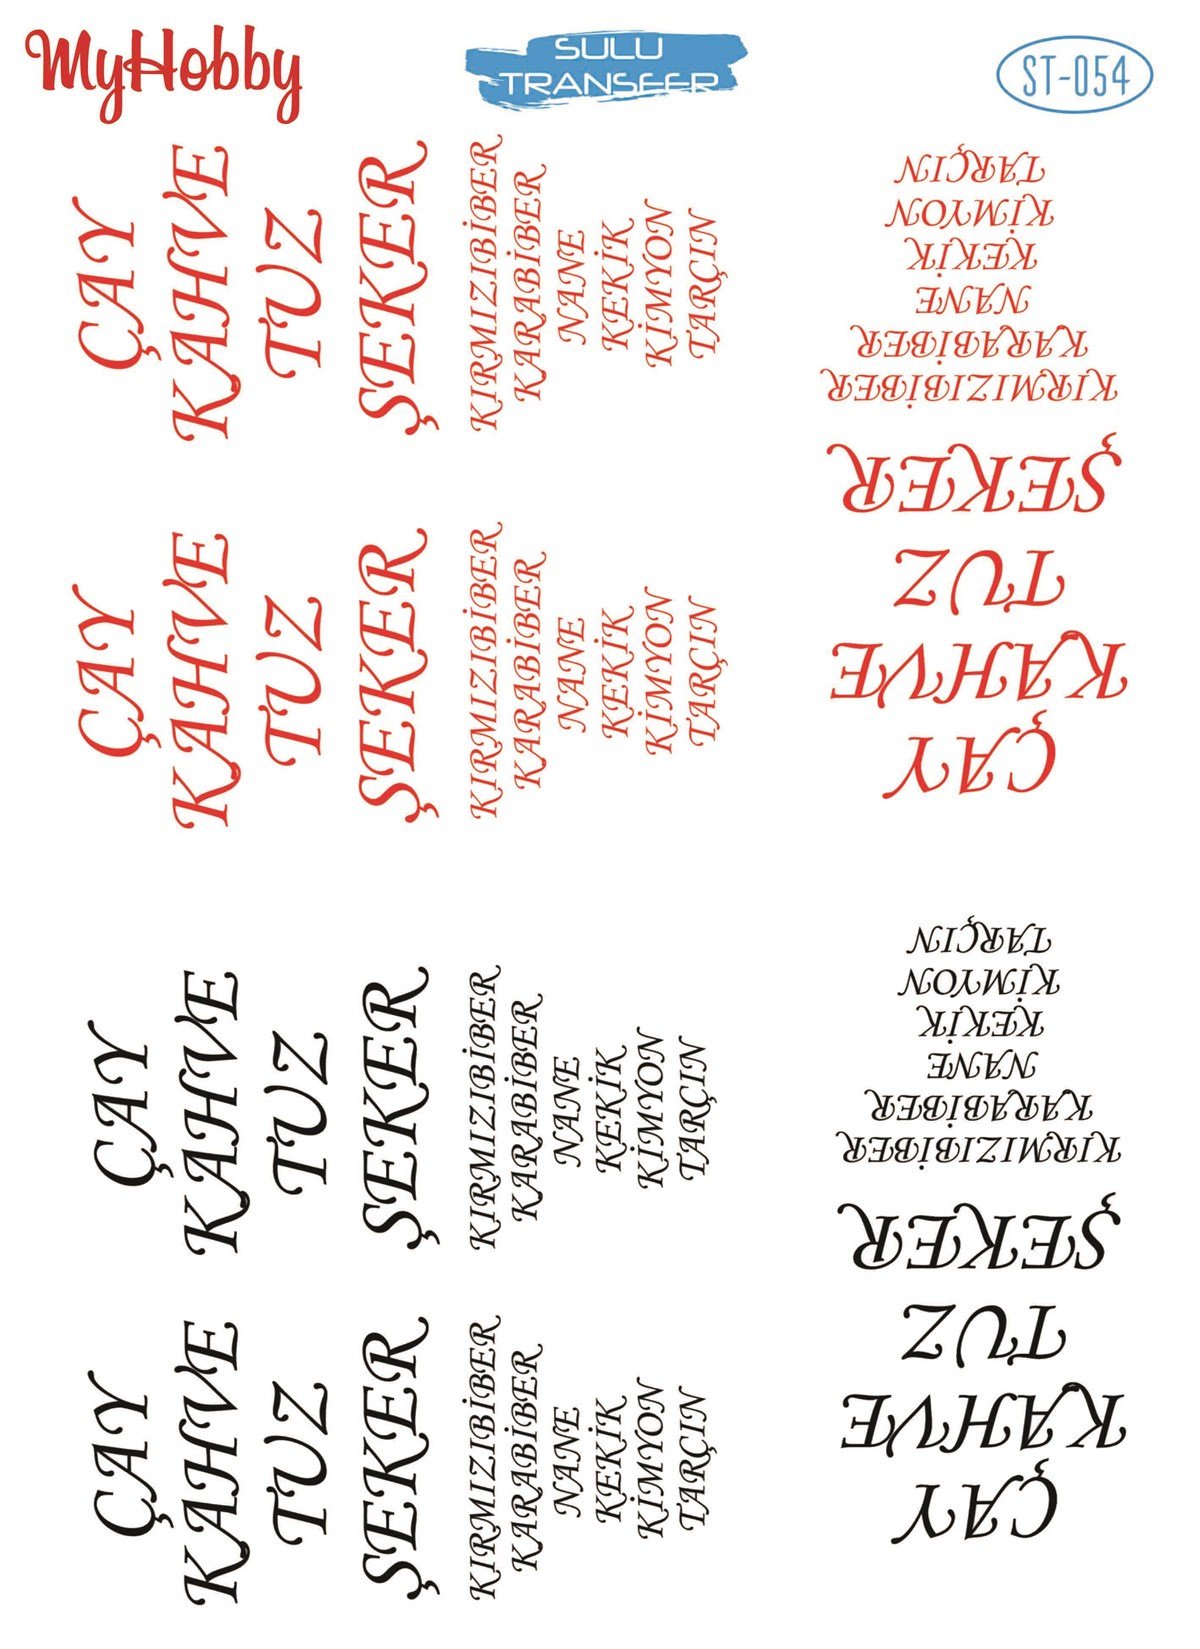 MyHobby
SULU
TRANSFER
ST-054
ÇAY
KAHVE
TUZ
ŞEKER
KIRMIZIBİBER
KARABİBER
NANE
KEKİK
KİMYON
TARÇIN
ÇAY
KAHVE
TUZ
ŞEKER
KIRMIZIBİBER
KARABİBER
NANE
KEKİK
KİMYON
TARÇIN
ÇAY
KAHVE
TUZ
ŞEKER
KIRMIZIBİBER
KARABİBER
NANE
KEKİK
KİMYON
TARÇIN
ÇAY
KAHVE
TUZ
ŞEKER
KIRMIZIBİBER
KARABİBER
NANE
KEKİK
KİMYON
TARÇIN
ÇAY
KAHVE
TUZ
ŞEKER
KIRMIZIBİBER
KARABİBER
NANE
KEKİK
KİMYON
TARÇIN
ÇAY
KAHVE
TUZ
ŞEKER
KIRMIZIBİBER
KARABİBER
NANE
KEKİK
KİMYON
TARÇIN